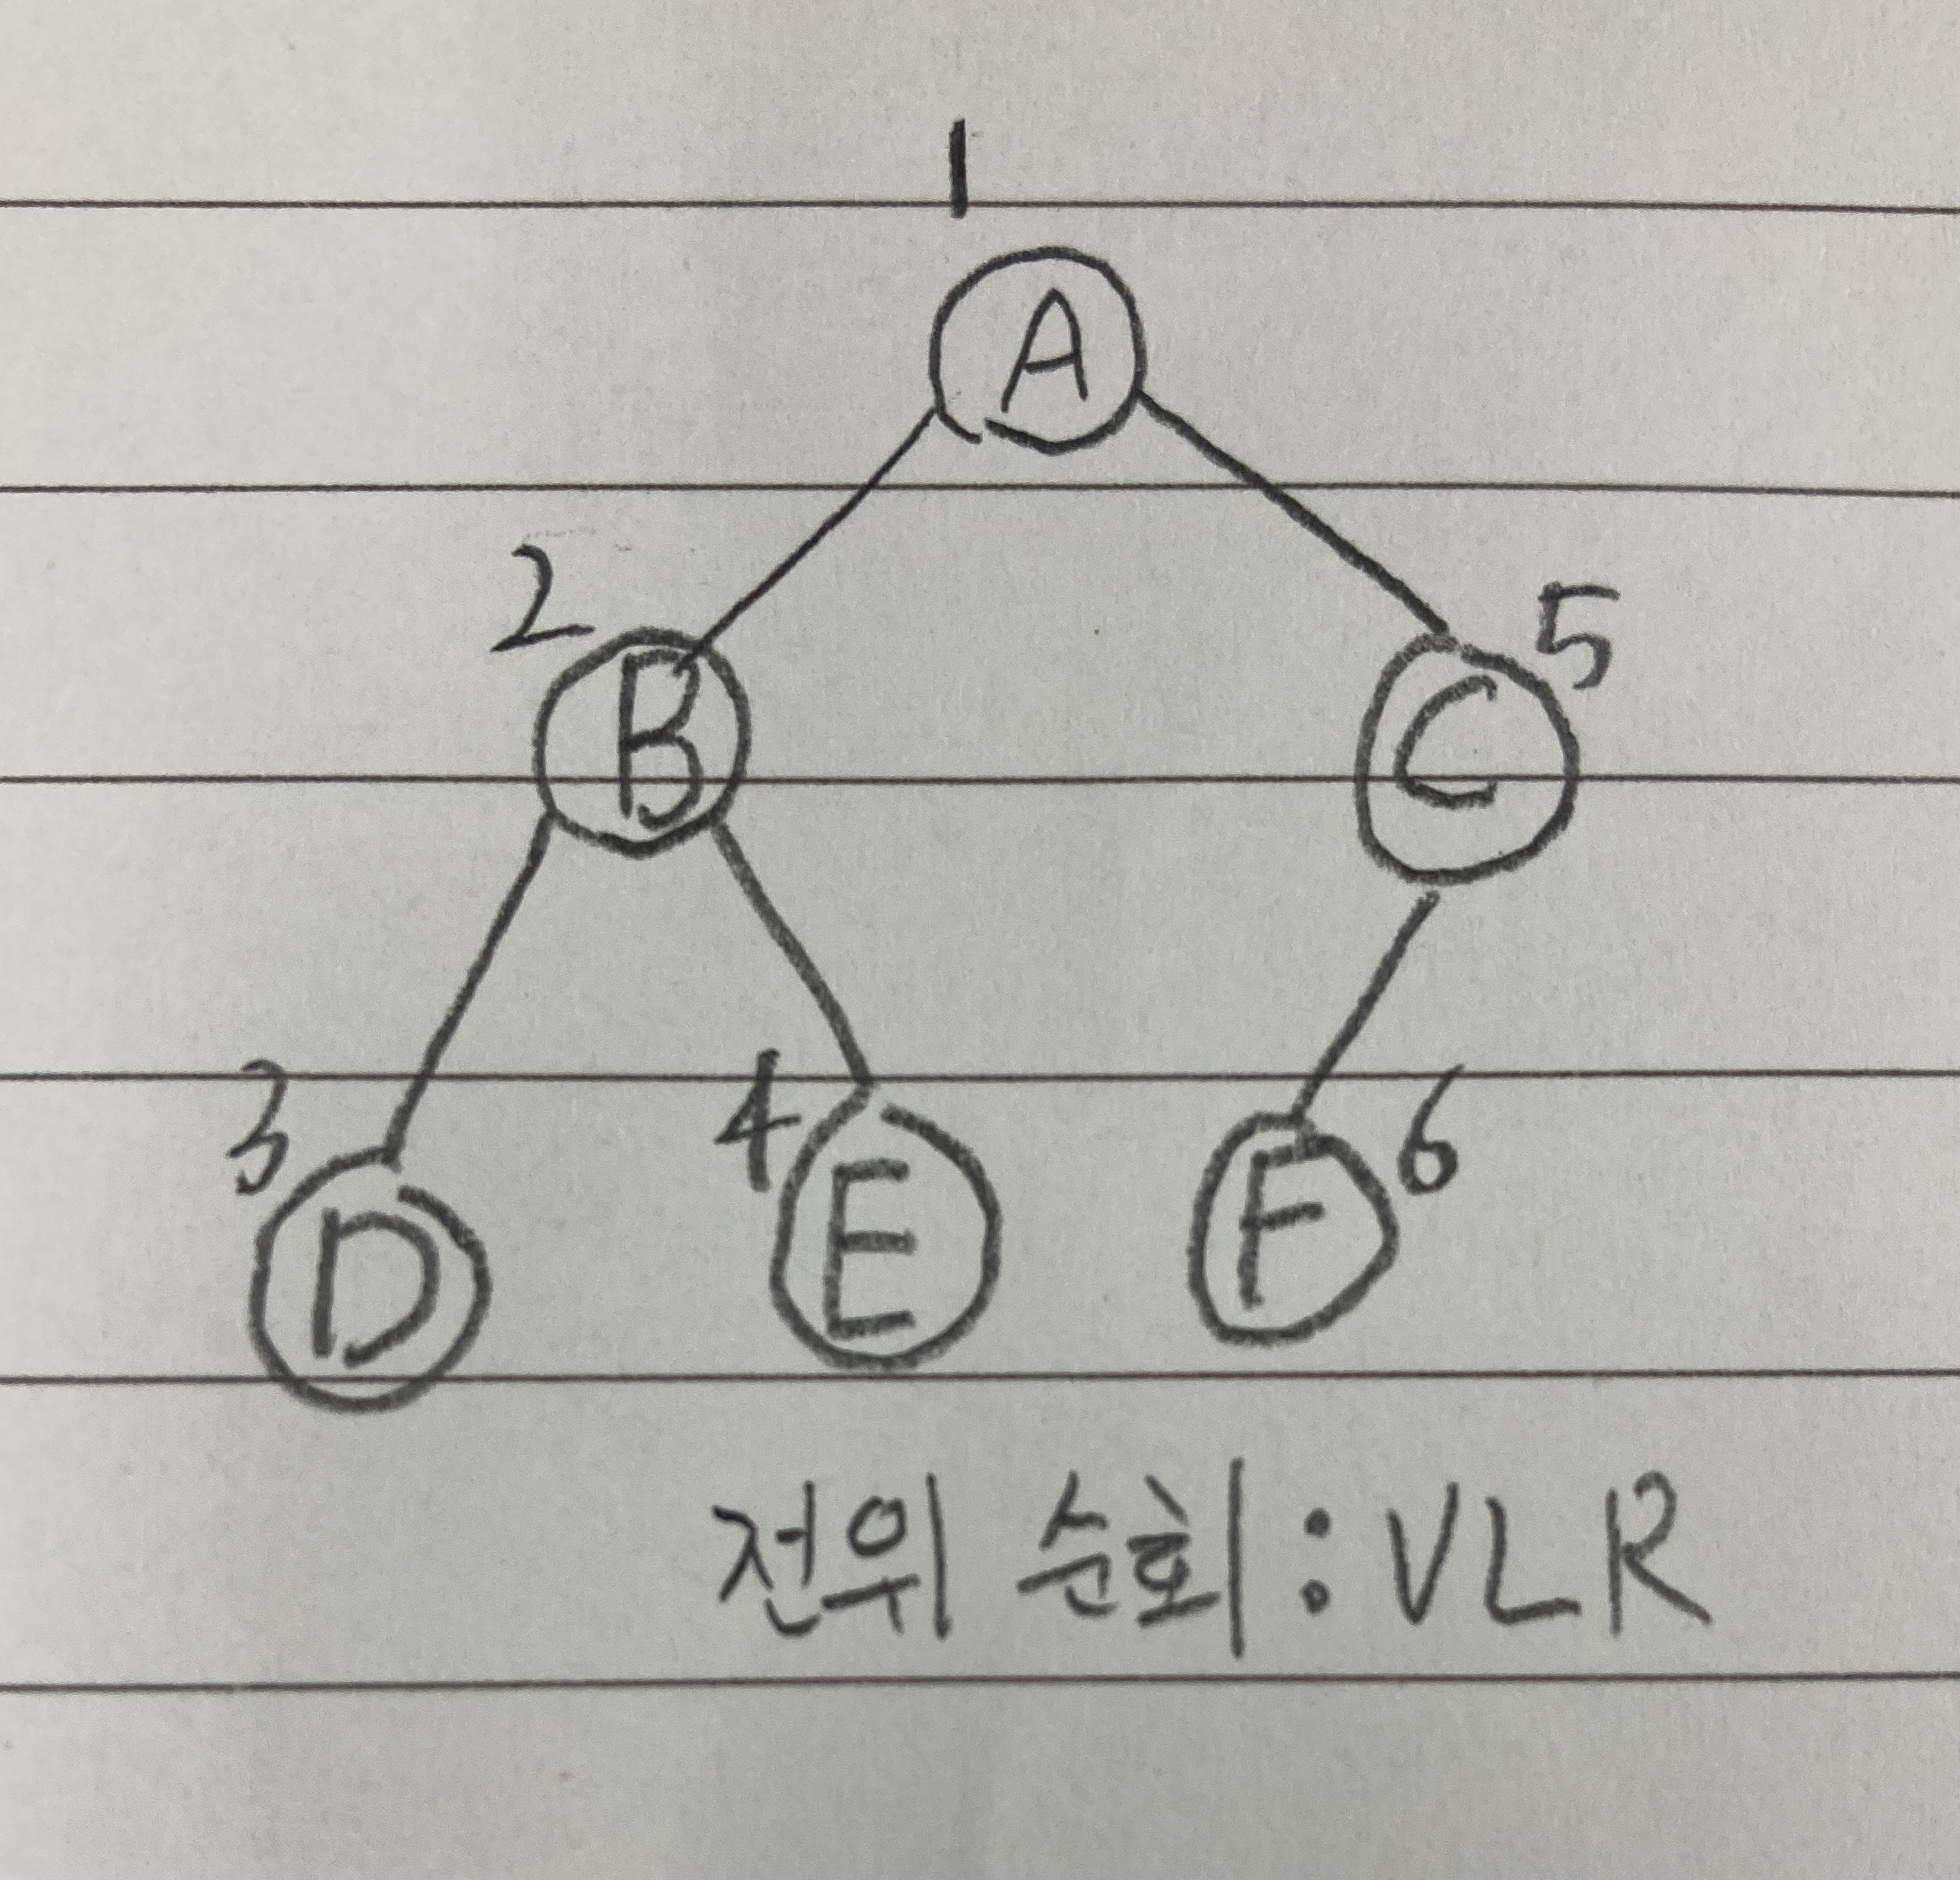 1
A
2
B
5
C
3
D
4
E
F
6
전위 순회 : VLR